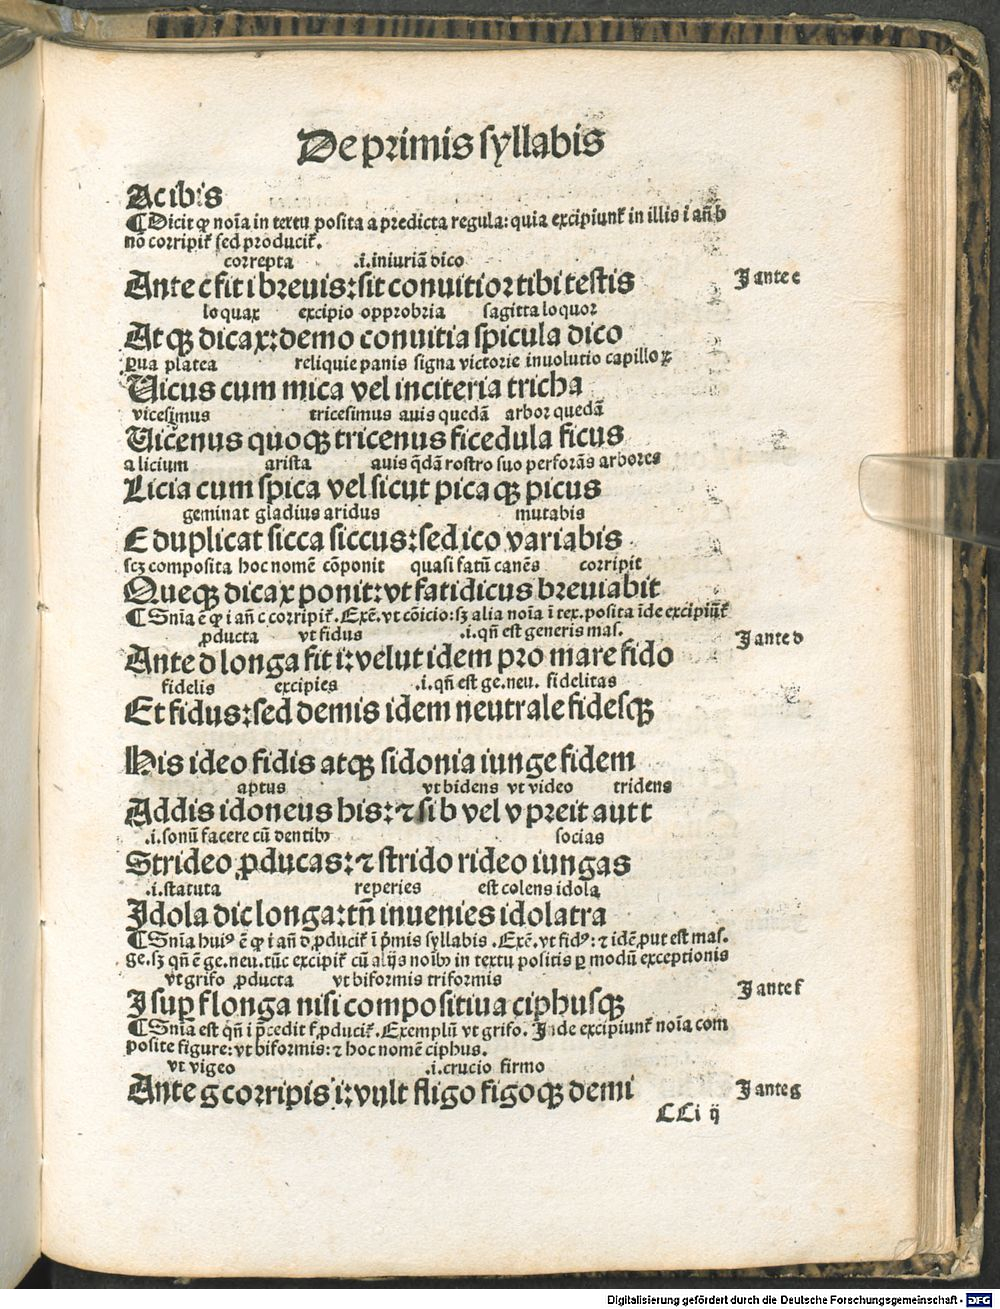 De primis syllabis
Ac ibis
¶ Dicit ꝙ noīa in textu posita a predicta regula: quia excipiunt᷑ in illis i añ b
nō corripit᷑ sed producit᷑.
correpta .i. iniuriā dico
Ante c fit i brevis: sit convitior tibi testis J ante c
loquax excipio opprobria sagitta loquor
Atqꝫ dicax: demo convitia spicula dico
ꝑua platea reliquie panis signa victorie involutio capilloꝝ
Uicus cum mica vel inciteria tricha
vicesimus tricesimus auis quedā arbor quedā
Uicenus quoqꝫ tricenus ficedula ficus
a licium arista auis q̄dā rostro suo perforās arbores
Licia cum spica vel sicut pica qꝫ picus
geminat gladius aridus mutabis
E duplicat sicca siccus: sed ico variabis
scꝫ composita hoc nomē cōponit quasi fatū canēs corripit
Queqꝫ dicax ponit: vt fatidicus breviabit
¶ Snīa ē ꝙ i añ c corripit᷑. Exē. vt cōicio: sꝫ alia noīa ī tex. posita īde excipiūt᷑
ꝓducta vt fidus .i. qñ est generis mas.
Ante d longa fit i: velut idem pro mare fido J ante d
fidelis excipies .i. qñ est ge. neu. fidelitas
Et fidus: sed demis idem neutrale fidesqꝫ
His ideo fidis atqꝫ sidonia iunge fidem
aptus vt bidens vt video tridens
Addis idoneus his: ⁊ si b vel v preit aut t
.i. sonū facere cū dentibꝰ socias
Strideo ꝓducas: ⁊ strido rideo iungas
.i. statuta reperies est colens idola
Jdola dic longa: tñ invenies idolatra
¶ Snīa huiꝰ ē ꝙ i añ d ꝓducit᷑ ī pͥmis syllabis. Exē. vt fidꝰ: ⁊ idē ꝓut est mas.
ge. sꝫ qñ ē ge. neu. tūc excipit᷑ cū alijs noībꝰ in textu positis ꝑ modū exceptionis
vt grifo ꝓducta vt biformis triformis
J suꝑ f longa nisi compositiva ciphusqꝫ J ante f
¶ Snīa est qñ i p̄cedit f ꝓducit᷑. Exemplū vt grifo. Jnde excipiunt᷑ noīa com
posite figure: vt biformis: ⁊ hoc nomē ciphus.
vt vigeo .i. crucio firmo
Ante g corripis i: vult fligo figoqꝫ demi J ante g
CC i ij
Digitalisierung gefördert durch die Deutsche Forschungsgemeinschaft - DFG